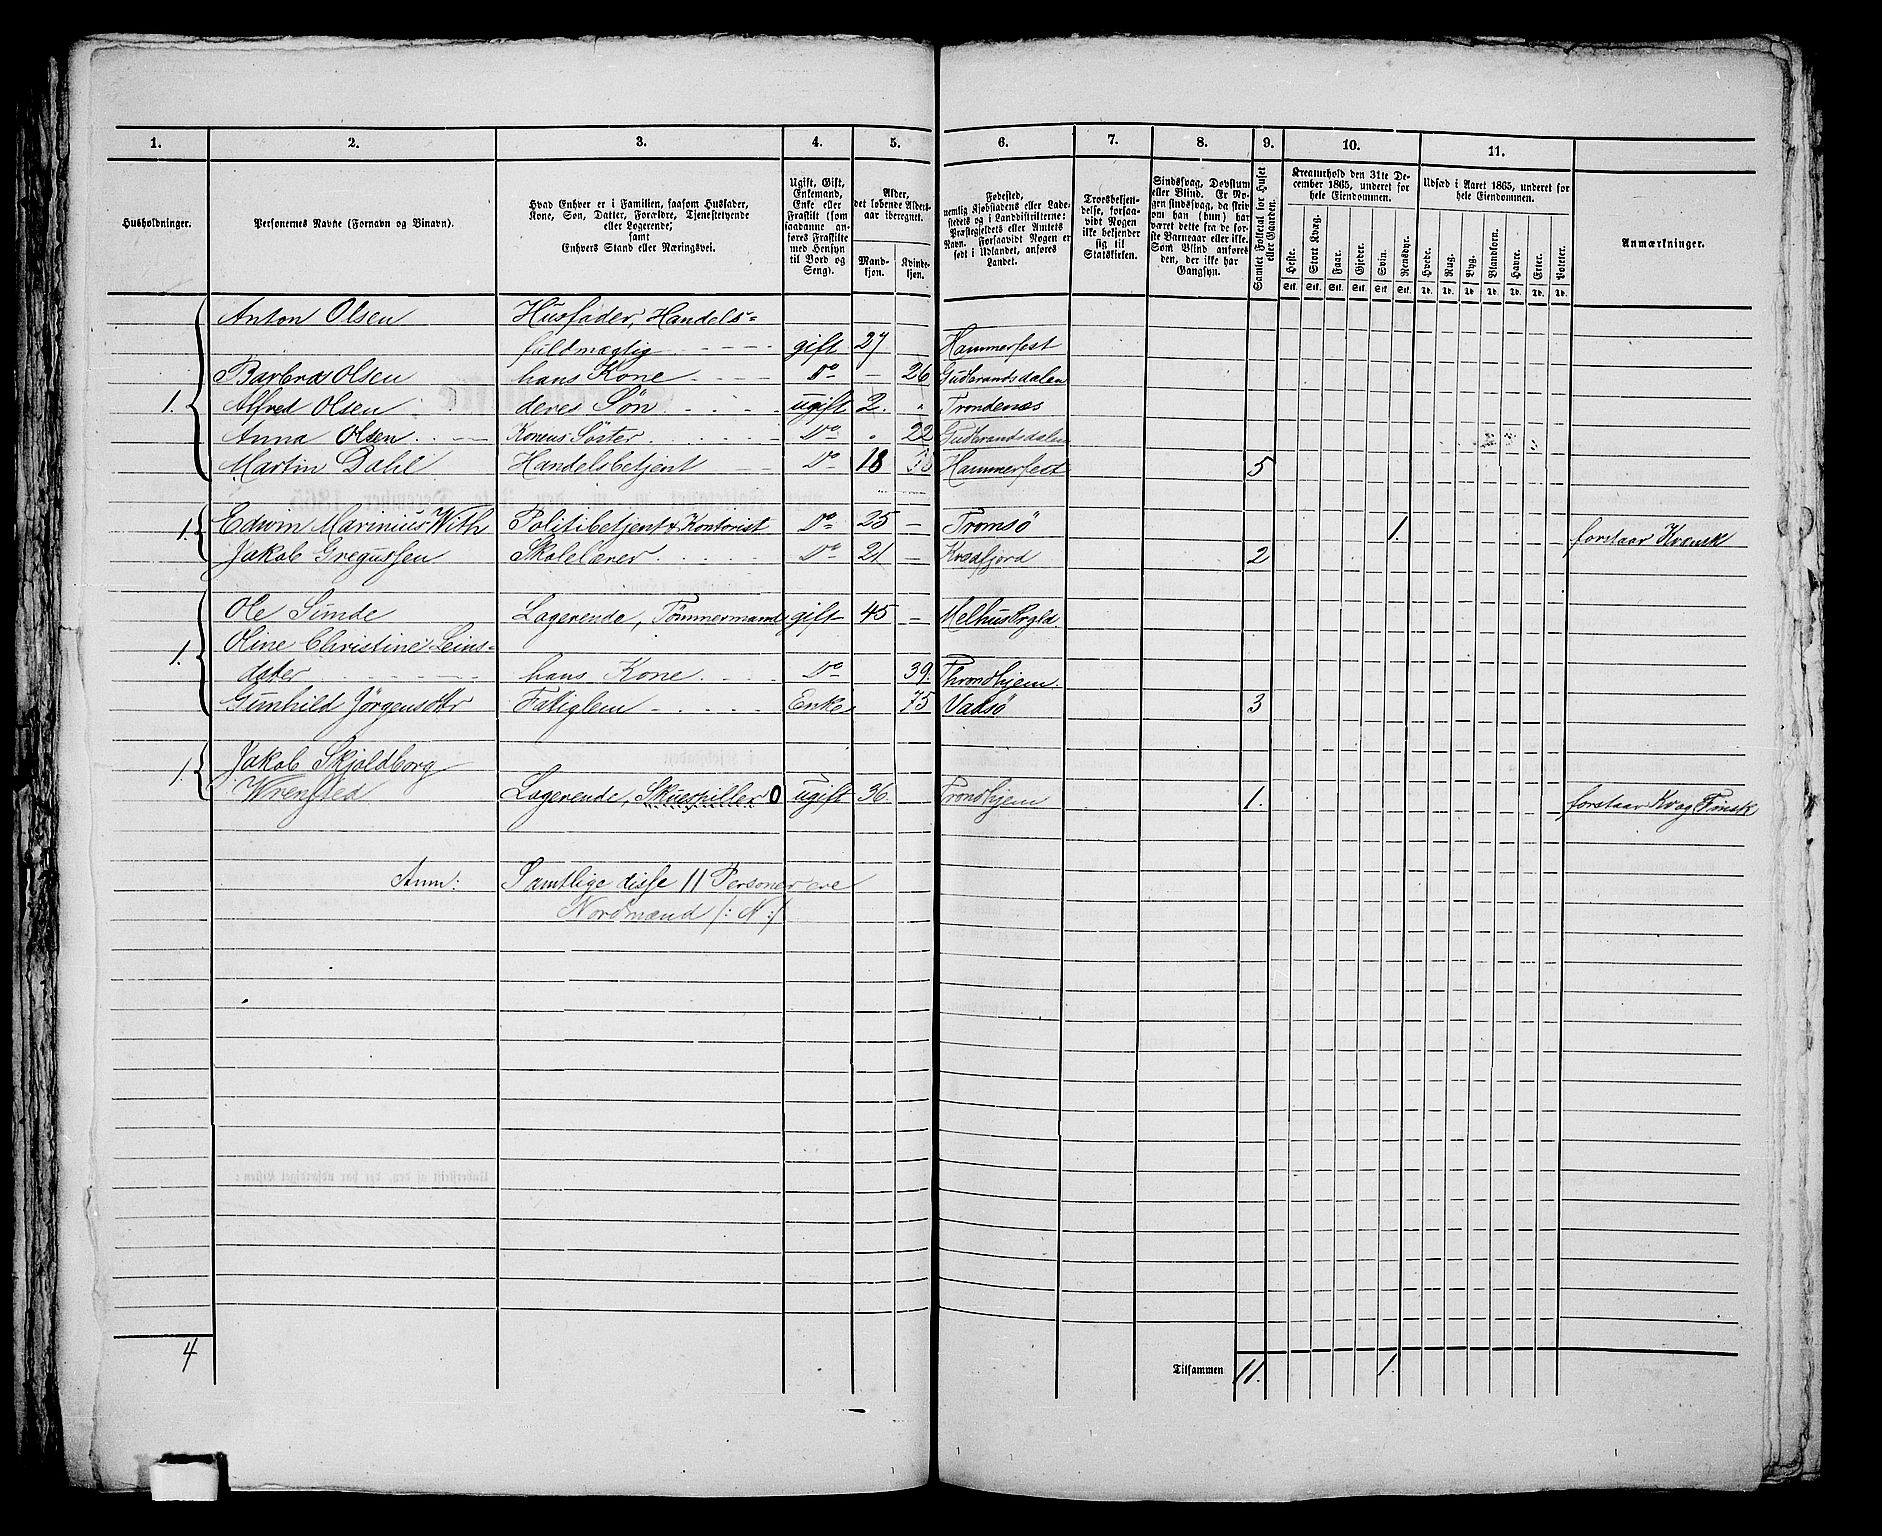 1. 2. 3. 4. 5. 6. 7. 8. 9. 10. 11.
Husholdninger.
Personernes Navne (Fornavn og Binavn).
Hvad Enhver er i Familien, saasom Husfader,
Kone, Søn, Datter, Forældre, Tjenestetyende
eller Logerende,
samt
Enhvers Stand eller Næringsvei.
Ugift, Gift,
Enkemand,
Enke eller
Fraskilt (som
saadanne an-
føres Fraskilte
med Hensyn
til Bord og
Seng).
Alder,
det løbende Alders-
aar iberegnet.
Mand-
kjøn.
Kvinde-
kjøn.
Fødested,
nemlig Kjøbstadens eller Lade-
stedets og i Landdistrikterne:
Præstegjeldets eller Amtets
Navn. Forsaavidt Nogen er
født i Udlandet, anføres
Landet.
Troesbekjen-
delse, forsaa-
vidt Nogen
ikke bekjender
sig til
Statskirken.
Sindssvag, Døvstum
eller Blind. Er No-
gen sindssvag, da skriv
om han (hun) har
været dette fra de før-
ste Barneaar eller ikke.
Som Blind anføres
den, der ikke har
Gangsyn.
Samlet Folketal for Huset
eller Gaarden.
Kreaturhold den 31te De-
cember 1865, underet for
hele Eiendommen.
Heste. Stort Kvæg. Faar. Gjeder. Svin. Rensdyr.
Stk. Stk. Stk. Stk. Stk. Stk.
Udsæd i Aaret 1865, underet for
hele Eiendommen.
Hvede. Rug. Byg. Blandkorn. Havre. Erter. Poteter.
Td. Td. Td. Td. Td. Td. Td.
Anmærkninger.
Anton Olsen Husfader, Handels-
fuldmægtig gift 27 Hammerfest
Barbra Olsen hans Kone Do 26 Gudbrandsdalen
1. Alfred Olsen deres Søn ugift 2. Trondenæs
Anna Olsen Konens Søster Do 22 Gudbrandsdalen
Martin Dahl Handelsbetjent Do 18 Hammerfest 5
1. Edwin Marinius With Politibetjent & Kontorist Do 25 Tromsø 1. forstaar Kvensk
Jakob Gregussen Skolelærer Do 21 Kvædfjord 2
Ole Sunde Logerende, Tømmermand gift 45 Melhus Prgld.
1. Oline Christine Leins-
dater hans Kone Do 39. Throndhjem.
Gunhild Jørgensdtr Fattiglem Enke 75 Vadsø 3
Jakob Skjoldborg
1. Wrensted Logerende, Skuespiller 0 ugift 36. Trondhjem 1. forstaar Kv og Finsk
Anm: Samtlige disse 11 Personer ere
Nordmænd /: N :/
4
Tilsammen 11. 1.